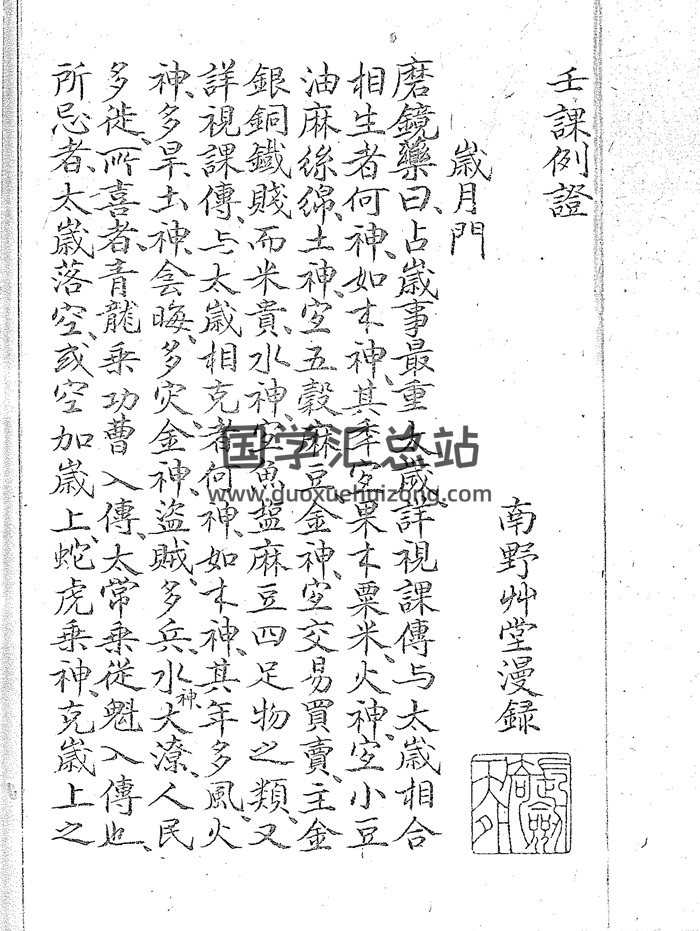 壬課例證
南野艸堂漫録
歲月門
磨鏡藥曰、占歲事最重太歲、詳視課傳、与太歲相合
相生者何神、如木神、其季宜果木粟米、火神、宜小豆
油麻絲綿、土神、宜五穀麻豆、金神、宜交易買賣、主金
銀銅鐵賤而米貴、水神、宜魚塩麻豆四足物之類、又
詳視課傳、与太歲相克者何神、如木神、其年多風、火
神、多旱、土神、会晦、多灾、金神、盜賊、多兵、水神、大潦、人民
多徙、所喜者、青龍乘功曹入傳、太常乘從魁入傳也、
所忌者、太歲落空、或空加歲上、蛇虎乘神、克歲上之
国学汇总站
www.guoxuehuizong.com